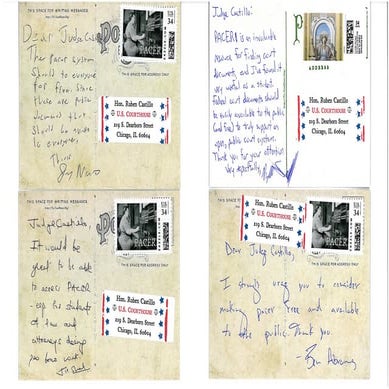 THIS SPACE FOR WRITING MESSAGES
Dear Judge Castillo
The Pacer system
should to everyone
for free. Since
these are public
documents that
should be available
to everyone.
Think
PO
PACER
34
THIS SPACE FOR ADDRESS ONLY
Hon. Ruben Castillo
U.S. COURTHOUSE
219 S. Dearborn Street
Chicago, IL 60604
Judge Castillo:
PACER is an invaluable
resource for finding court
documents, and I've found it
very useful as a student.
Federal court documents should
be easily available to the public
(and free) to truly support an
open, public court system.
Thank you for your attention
Very respectfully,
P
ADDRESS
Hon. Ruben Castillo
U.S. COURTHOUSE
219 S. Dearborn Street
Chicago, IL 60604
THIS SPACE FOR WRITING MESSAGES
Judge Castillo,
It would be
great to be able
to access PACER
- esp for students
of law and
attorneys doing
pro bono work.
PO
PACER
34
THIS SPACE FOR ADDRESS ONLY
Hon. Ruben Castillo
U.S. COURTHOUSE
219 S. Dearborn Street
Chicago, IL 60604
THIS SPACE FOR WR
Hon. Ruben Castillo
U.S. COURTHOUSE
219 S. Dearborn Street
Chicago, IL 60604
PACER
34
THIS SPACE FOR ADDRESS ONLY
Dear Judge Castillo,
I strongly urge you to consider
making pacer free and available
to the public. Thank you.